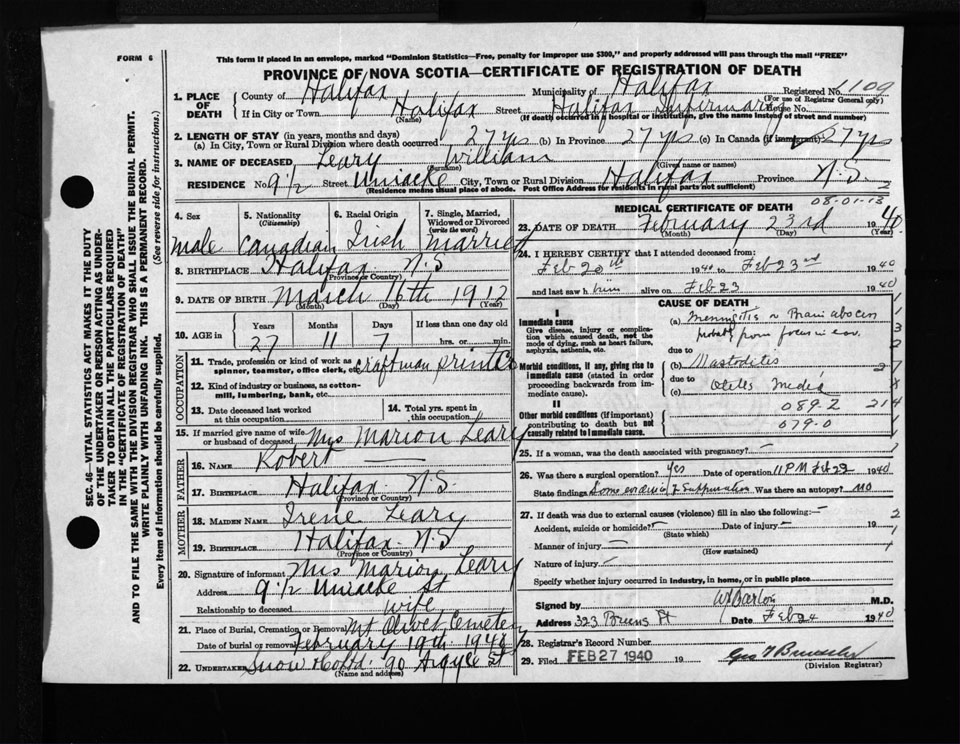 FORM 6
This form if placed in an envelope, marked "Dominion Statistics—Free, penalty for improper use $300," and properly addressed will pass through the mail "FREE"
PROVINCE OF NOVA SCOTIA—CERTIFICATE OF REGISTRATION OF DEATH
1. PLACE OF DEATH
County of Halifax Municipality of Halifax Registered No. 1109
(For use of Registrar General only)
If in City or Town Halifax Street Halifax Infirmary House No.
(Name) (If death occurred in a hospital or institution, give the name instead of street and number)
2. LENGTH OF STAY (in years, months and days)
(a) In City, Town or Rural Division where death occurred 27 yrs (b) In Province 27 yrs (c) In Canada (if immigrant) 27 yrs
3. NAME OF DECEASED Leary William
(Surname) (Given name or names)
RESIDENCE No. 9 1/2 Street Uniacke City, Town or Rural Division Halifax Province N.S.
(Residence means usual place of abode. Post Office Address for residents in rural parts not sufficient)
2
08-01-13
4. Sex
male
5. Nationality
(Citizenship)
Canadian
6. Racial Origin
Irish
7. Single, Married, Widowed or Divorced
(write the word)
Married
8. BIRTHPLACE Halifax N.S
(Province or Country)
9. DATE OF BIRTH March 16th 1912
(Month) (Day) (Year)
10. AGE in
Years Months Days If less than one day old
27 11 7 hrs. or min.
OCCUPATION
11. Trade, profession or kind of work as spinner, teamster, office clerk, etc. craftman printer
12. Kind of industry or business, as cotton-mill, lumbering, bank, etc.
13. Date deceased last worked at this occupation
14. Total yrs. spent in this occupation
15. If married give name of wife or husband of deceased Mrs Marion Leary
FATHER
16. Name Robert —
17. BIRTHPLACE Halifax N.S.
(Province or Country)
MOTHER
18. MAIDEN NAME Irene Leary
19. BIRTHPLACE Halifax N.S
(Province or Country)
20. Signature of informant Mrs Marion Leary
Address 9 1/2 Uniacke St
Relationship to deceased wife
21. Place of Burial, Cremation or Removal Mt Olivet Cemetery
Date of burial or removal February 19th 1940
22. UNDERTAKER Snow & Co Ltd. 90 Argyle St
(Name and address)
MEDICAL CERTIFICATE OF DEATH
23. DATE OF DEATH February 23rd 1940
(Month) (Day) (Year)
24. I HEREBY CERTIFY that I attended deceased from:
Feb 20th 1940 to Feb 23rd 1940
and last saw h him alive on Feb 23 1940
CAUSE OF DEATH
I
Immediate cause
Give disease, injury or complication which caused death, not the mode of dying, such as heart failure, asphyxia, asthenia, etc.
(a) Meningitis Brain abscess
from focus in ear
due to
Morbid conditions, if any, giving rise to immediate cause (stated in order proceeding backwards from immediate cause)
(b) Mastoditis
due to
(c) Otitis Media
II
Other morbid conditions (if important) contributing to death but not causally related to immediate cause.
089-2
079-0
214
25. If a woman, was the death associated with pregnancy? —
26. Was there a surgical operation? yes Date of operation 11 PM Feb 22 1940
State findings Some evidence of suppuration Was there an autopsy? no
27. If death was due to external causes (violence) fill in also the following:—
Accident, suicide or homicide? — Date of injury — 19
(State which)
Manner of injury —
(How sustained)
Nature of injury —
Specify whether injury occurred in industry, in home, or in public place
Signed by Barton M.D.
Address 323 Bruns St Date Feb 24 1940
28. Registrar's Record Number
29. Filed FEB 27 1940 19
(Division Registrar)
SEC. 46—VITAL STATISTICS ACT MAKES IT THE DUTY
OF THE UNDERTAKER OR PERSON ACTING AS UNDER-
TAKER TO OBTAIN ALL THE PARTICULARS REQUIRED
IN THE "CERTIFICATE OF REGISTRATION OF DEATH"
AND TO FILE THE SAME WITH THE DIVISION REGISTRAR WHO SHALL ISSUE THE BURIAL PERMIT.
WRITE PLAINLY WITH UNFADING INK. THIS IS A PERMANENT RECORD.
Every item of information should be carefully supplied. (See reverse side for instructions.)